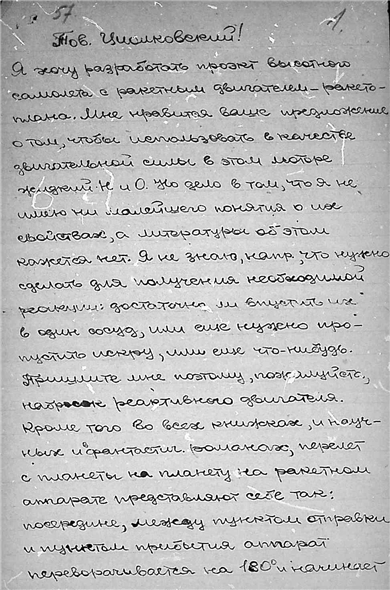 57. 1.
Тов. Циолковский!
Я хочу разработать проэкт высотного
самолета с ракетным двигателем – ракето-
плана. Мне нравится ваше предложение
о том, чтобы использовать в качестве
двигательной силы в этом моторе
жидкий H и O. Но дело в том, что я не
имею ни малейшего понятия о их
свойствах, а литературы об этом
кажется нет. Я не знаю, напр. что нужно
сделать для получения необходимой
реакции: достаточно ли впустить их
в один сосуд, или еще нужно про-
пустить искру, или еще что-нибудь.
Пришлите мне поэтому, пожалуйста,
набросок реактивного двигателя.
Кроме того во всех книжках, и науч-
ных и фантастич. романах, перелет
с планеты на планету на ракетном
аппарате представляют себе так:
посередине, между пунктом отправки
и пунктом прибытия аппарат
переворачивается на 180° и начинает